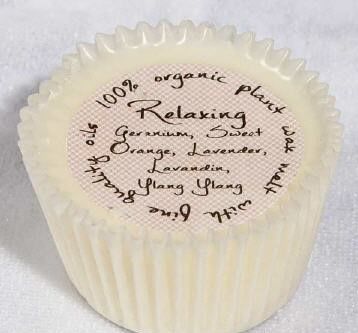 100% organic plant wax melt with fine quality oils
Relaxing
Geranium, Sweet
Orange, Lavender,
Lavandin,
Ylang Ylang